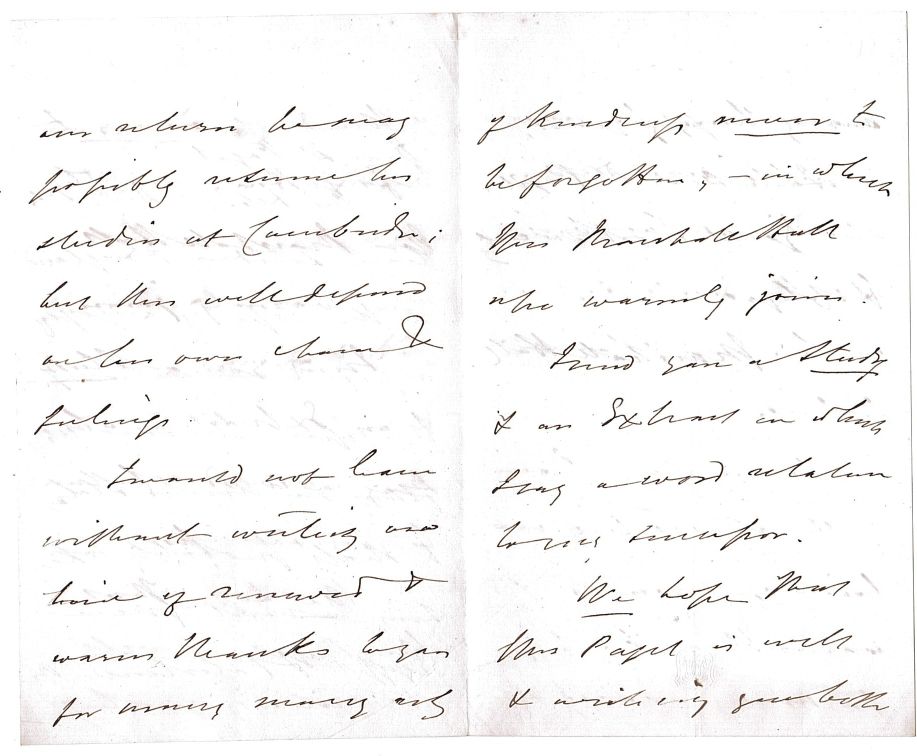 our return he may
possibly resume his
studies at Cambridge;
but this will depend
on his own choice &
feelings.
I would not leave
without writing one
line of renewed &
warm thanks to you
for many many acts
of kindness never to
be forgotten, – in which
Mrs Marshall Hall
warmly joins.
I send you a Study
& an Extract in which
I say a word relative
to my successor.
We hope that
Mrs Paget is well
& wishing you both